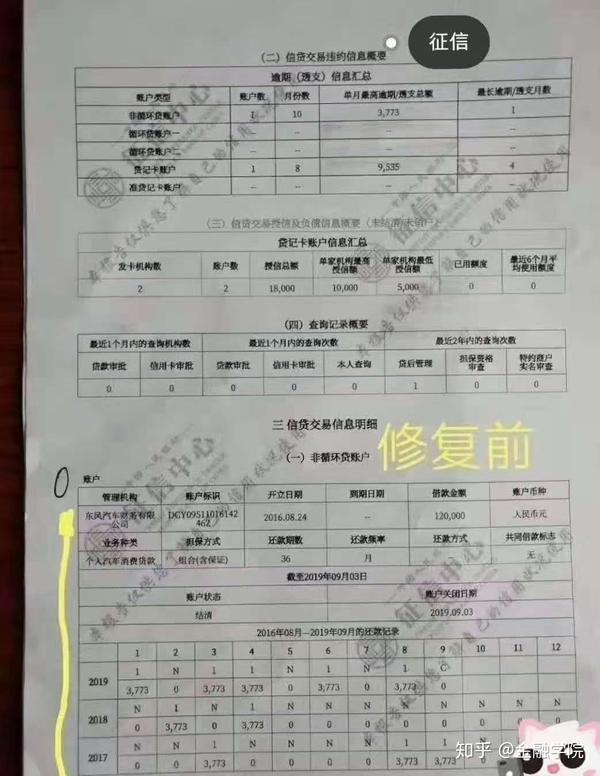 征信
（二）信贷交易违约信息概要
逾期（透支）信息汇总
账户类型 账户数 月份数 单月最高逾期/透支总额 最长逾期/透支月数
非循环贷账户 1 10 3,773 1
循环贷账户一 -- -- -- --
循环贷账户二 -- -- -- --
贷记卡账户 1 8 9,535 4
准贷记卡账户 -- -- -- --
（三）信贷交易授信及负债信息概要（未结清/未销户）
贷记卡账户信息汇总
发卡机构数 账户数 授信总额 单家机构最高授信额 单家机构最低授信额 已用额度 最近6个月平均使用额度
2 2 18,000 10,000 5,000
（四）查询记录概要
最近1个月内的查询机构数 最近1个月内的查询次数 最近2年内的查询次数
贷款审批 信用卡审批 贷款审批 信用卡审批 本人查询 贷后管理 担保资格审查 特约商户实名审查
0 0 0 0 0 1 0 0
三 信贷交易信息明细
修复前
（一）非循环贷账户
账户
管理机构 账户标识 开立日期 到期日期 借款金额 账户币种
东风汽车财务有限公司 2016.08.24 -- 120,000 人民币元
业务种类 担保方式 还款期数 还款频率 还款方式 共同借款标志
个人汽车消费贷款 组合(含保证) 36 月 无
截至2019年09月03日
账户状态 账户关闭日期
结清 2019.09.03
2016年08月—2019年09月的还款记录
1 2 3 4 5 6 7 8 9 10 11 12
2019 1 N 1 1 N 1 N 1 C
3,773 0 3,773 3,773 0 3,773 0 3,773 0
2018 N 1 N 1 N N N N N N N
0 3,773 0 3,773 0 0 0 0 0 0 0
2017 N N 1 N N N N 1 1 N N
0 0 3,773 0 0 0 0 3,773 3,773 0
知乎 @金融学院